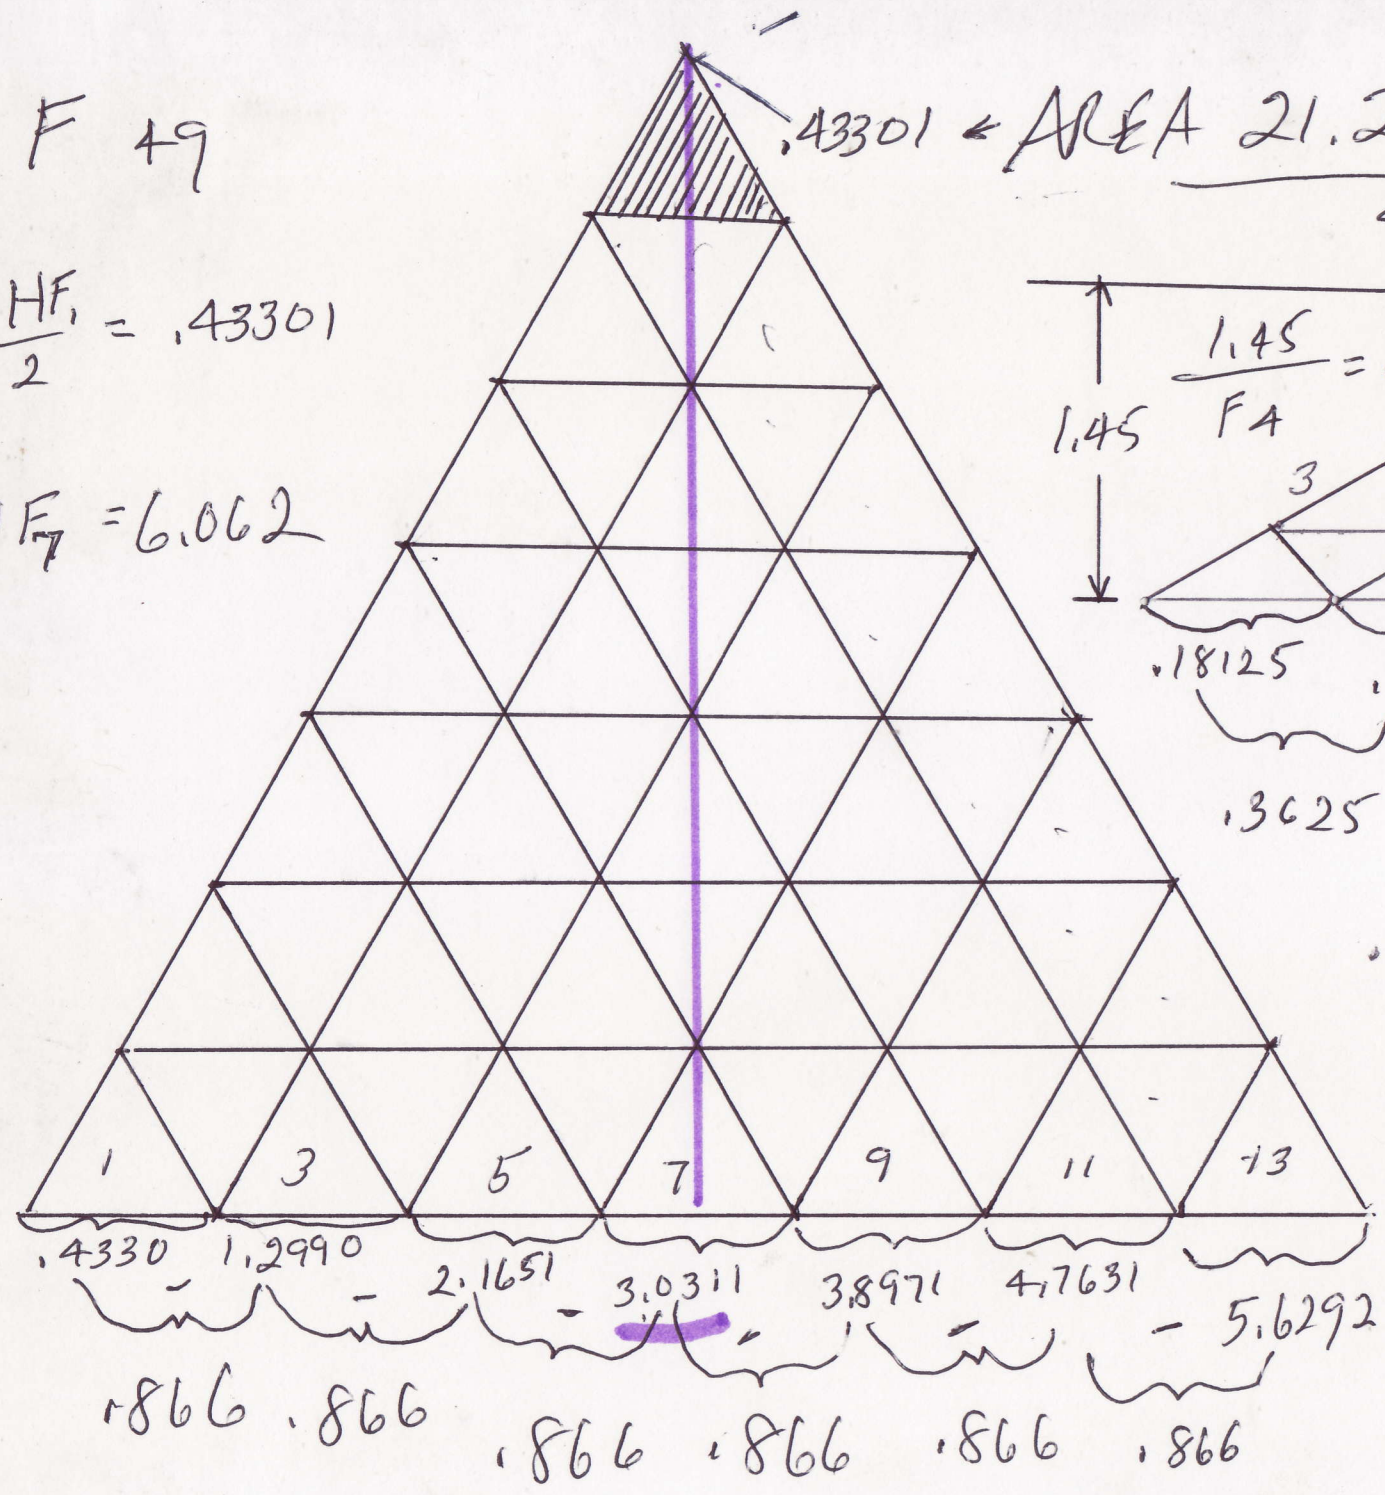 F 49
.43301 ← AREA 21.2
HF1
2
= .43301
F7 = 6.062
1.45
F4
=
1.45
3
.18125
.3625
1 3 5 7 9 11 13
.4330 1.2990 2.1651 3.0311 3.8971 4.7631 5.6292
- - - - - -
.866 .866 .866 .866 .866 .866